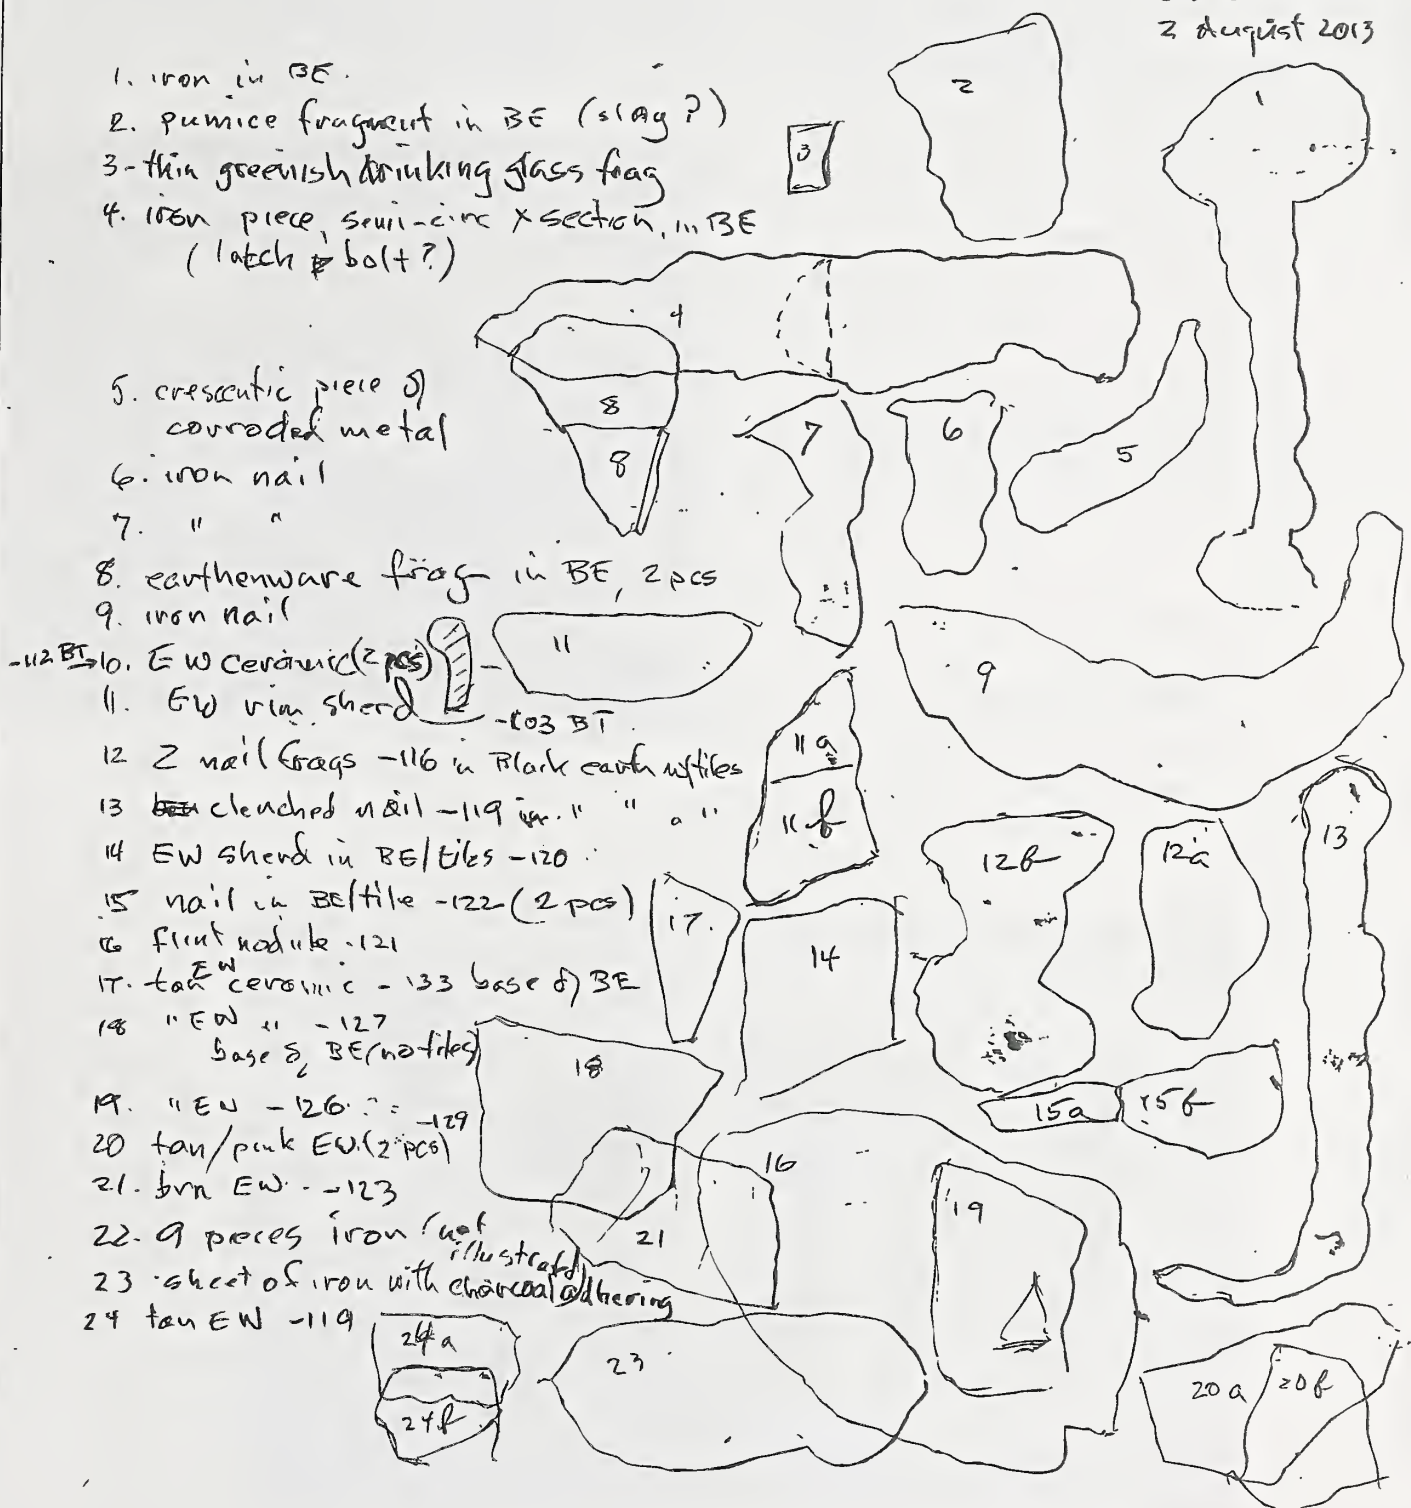 2 August 2013
1. iron in BE.
2. pumice fragment in BE (slag?)
3-thin greenish drinking glass frag
4. iron piece, semi-circ x section, in BE
(latch bolt?)
5. crescentic piece of
corroded metal
6. iron nail
7. " "
8. earthenware frag in BE, 2 pcs
9. iron nail
-112 BT → 10. EW ceramic (2 pcs)
11. EW rim sherd
-103 BT
12 2 nail frags -116 in Black earth w/tiles
13 clenched nail -119 in " " " "
14 EW sherd in BE/tiles -120
15 nail in BE/tile -122 (2 pcs)
16 flint nodule -121
17. tan EW ceramic -133 base of BE
18 " EW " -127
base of BE (no tiles)
19. " EW -126
20 tan/pink EW (2 pcs) -129
21. brn EW -123
22. 9 pieces iron (not
illustrated)
23 sheet of iron with charcoal adhering
24 tan EW -119
1
2
3
4
5
6
7
8
8
9
11
11a
11b
12b
12a
13
14
15a
15b
16
17
18
19
20a
20b
21
23
24a
24b